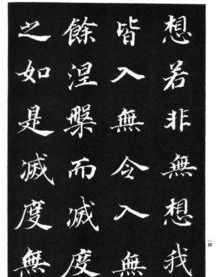 想若非無想我
皆入無令入無
餘涅槃而滅度
之如是滅度無